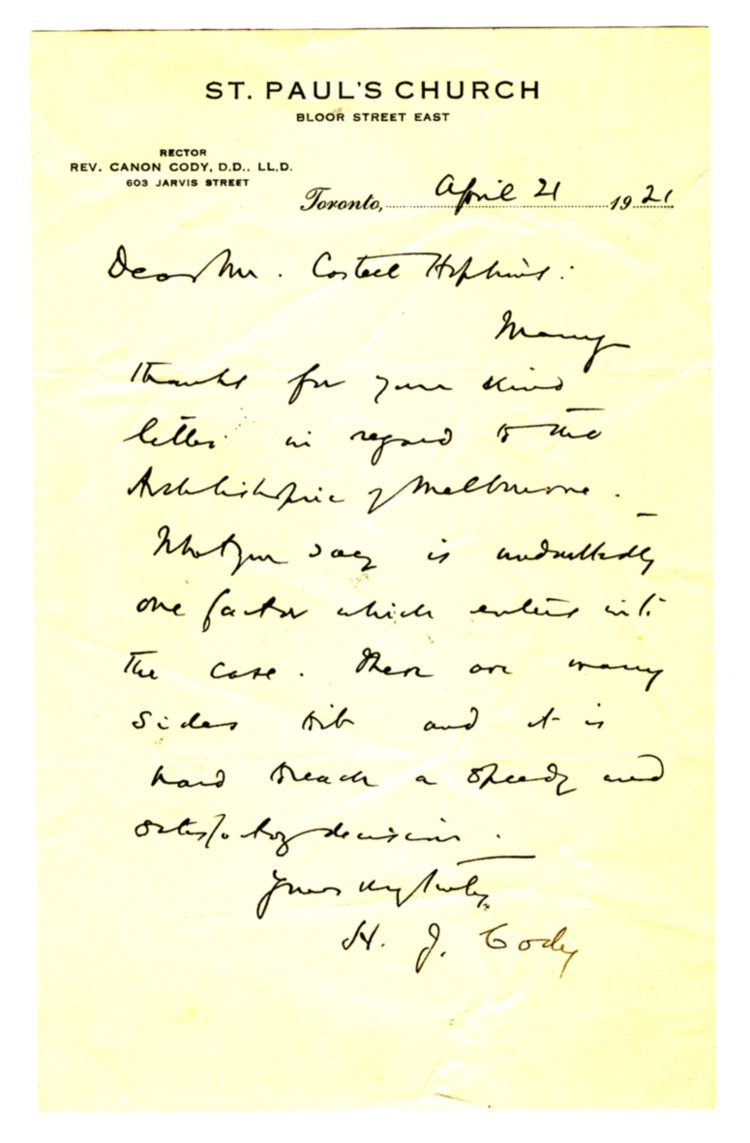 ST. PAUL'S CHURCH
BLOOR STREET EAST
RECTOR
REV. CANON CODY, D.D., LL.D.
603 JARVIS STREET
Toronto, April 21 1921
Dear Mr. Castell Hopkins:
Many
thanks for your kind
letter in regard to the
Archbishopric of Melbourne.
What you say is undoubtedly
one factor which enters into
the case. There are many
sides to it and it is
hard to reach a speedy and
satisfactory decision.
Yours very truly,
H. J. Cody